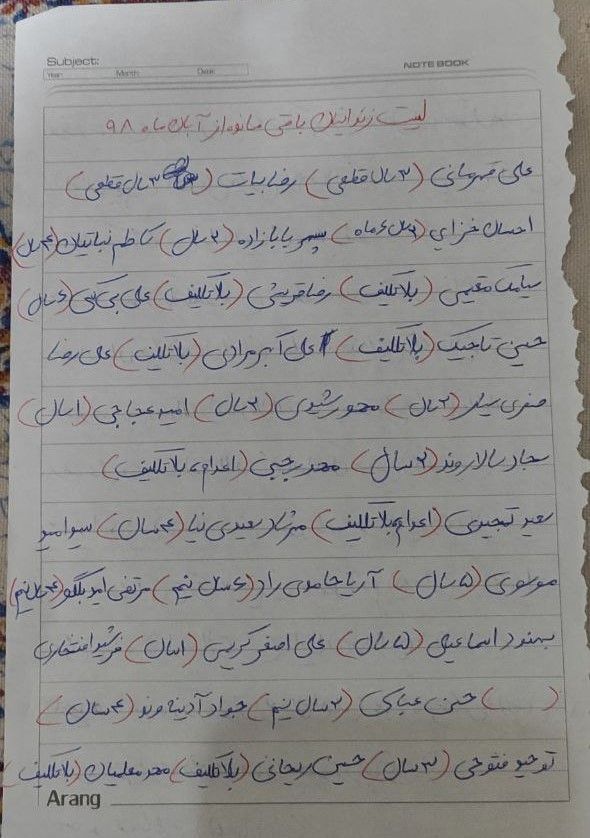 Subject:
Year: Month: Date:
NOTE BOOK
لیست زندانیان باقی مانده از آبان ماه ۹۸
علی قهرمانی (۳ سال قطعی) رضا بیات (۳ سال قطعی)
احسان خزاي (۲سال ۶ماه) سپهر بابازاده (۳سال) کاظم نباتیان (۴سال)
سیامک مقیمی (بلاتکلیف) رضا قریشی (بلاتکلیف) علی بی کس (۶سال)
حسین تاجیک (بلاتکلیف) علی اکبر مرادی (بلاتکلیف) علی رضا
صفری سیار (۲سال) محمد رشیدی (۳سال) امید عجاجی (۱سال)
سجاد سالاروند (۳سال) محمد رجبی (اعدام، بلاتکلیف)
سعید تمجیدی (اعدام، بلاتکلیف) مهرشاد سعیدی نیا (۴سال) سید امید
موسوی (۵سال) آریا حامدی راد (۶سال نیم) مرتضی امیدبیگلو (۴سال نیم)
بهنود اسماعیلی (۵سال) علی اصغر کریمی (۱سال) فرشید افتخاری
( ) حسن عباسی (۲سال نیم) جواد آدینه وند (۴سال)
توحید فتوحی (۳سال) حسین ریحانی (بلاتکلیف) محمد معلمیان (بلاتکلیف
Arang